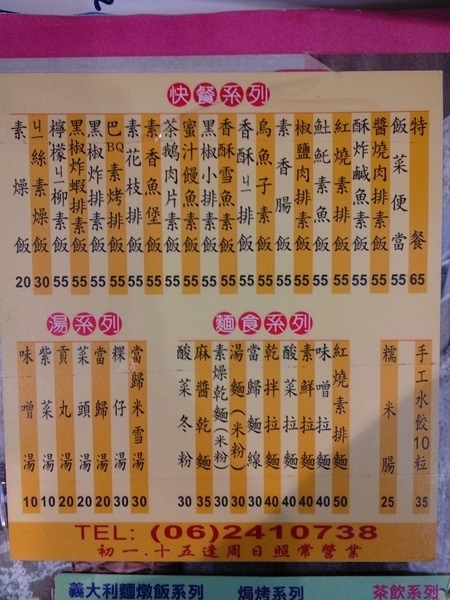 快餐系列
特餐 65
飯菜便當 55
醬燒肉排素飯 55
酥炸鹹魚素飯 55
紅燒素排飯 55
素魚飯 55
椒鹽肉排素飯 55
素香腸飯 55
烏魚子素飯 55
香酥ㄐ排飯 55
香酥雪魚素飯 55
黑椒小排素飯 55
蜜汁鰻魚素飯 55
茶鵝肉片素飯 55
素香魚堡飯 55
素花枝排飯 55
巴BQ素烤排飯 55
黑椒炸排素飯 55
黑椒炸蝦排素飯 55
檸檬ㄐ柳素飯 55
ㄐ絲素燥飯 30
素燥飯 20
手工水餃10粒 35
糯米腸 25
麵食系列
紅燒素排麵 50
味噌拉麵 40
素鮮拉麵 40
酸菜拉麵 40
乾拌拉麵 40
當歸麵線 30
湯麵(米粉) 30
素燥乾麵(米粉) 30
麻醬乾麵 35
酸菜冬粉 30
湯系列
當歸米雪湯 30
粿仔湯 30
當歸湯 20
菜頭湯 20
貢丸湯 20
紫菜湯 10
味噌湯 10
TEL: (06)2410738
初一.十五逢周日照常營業
義大利麵燉飯系列 焗烤系列 茶飲系列